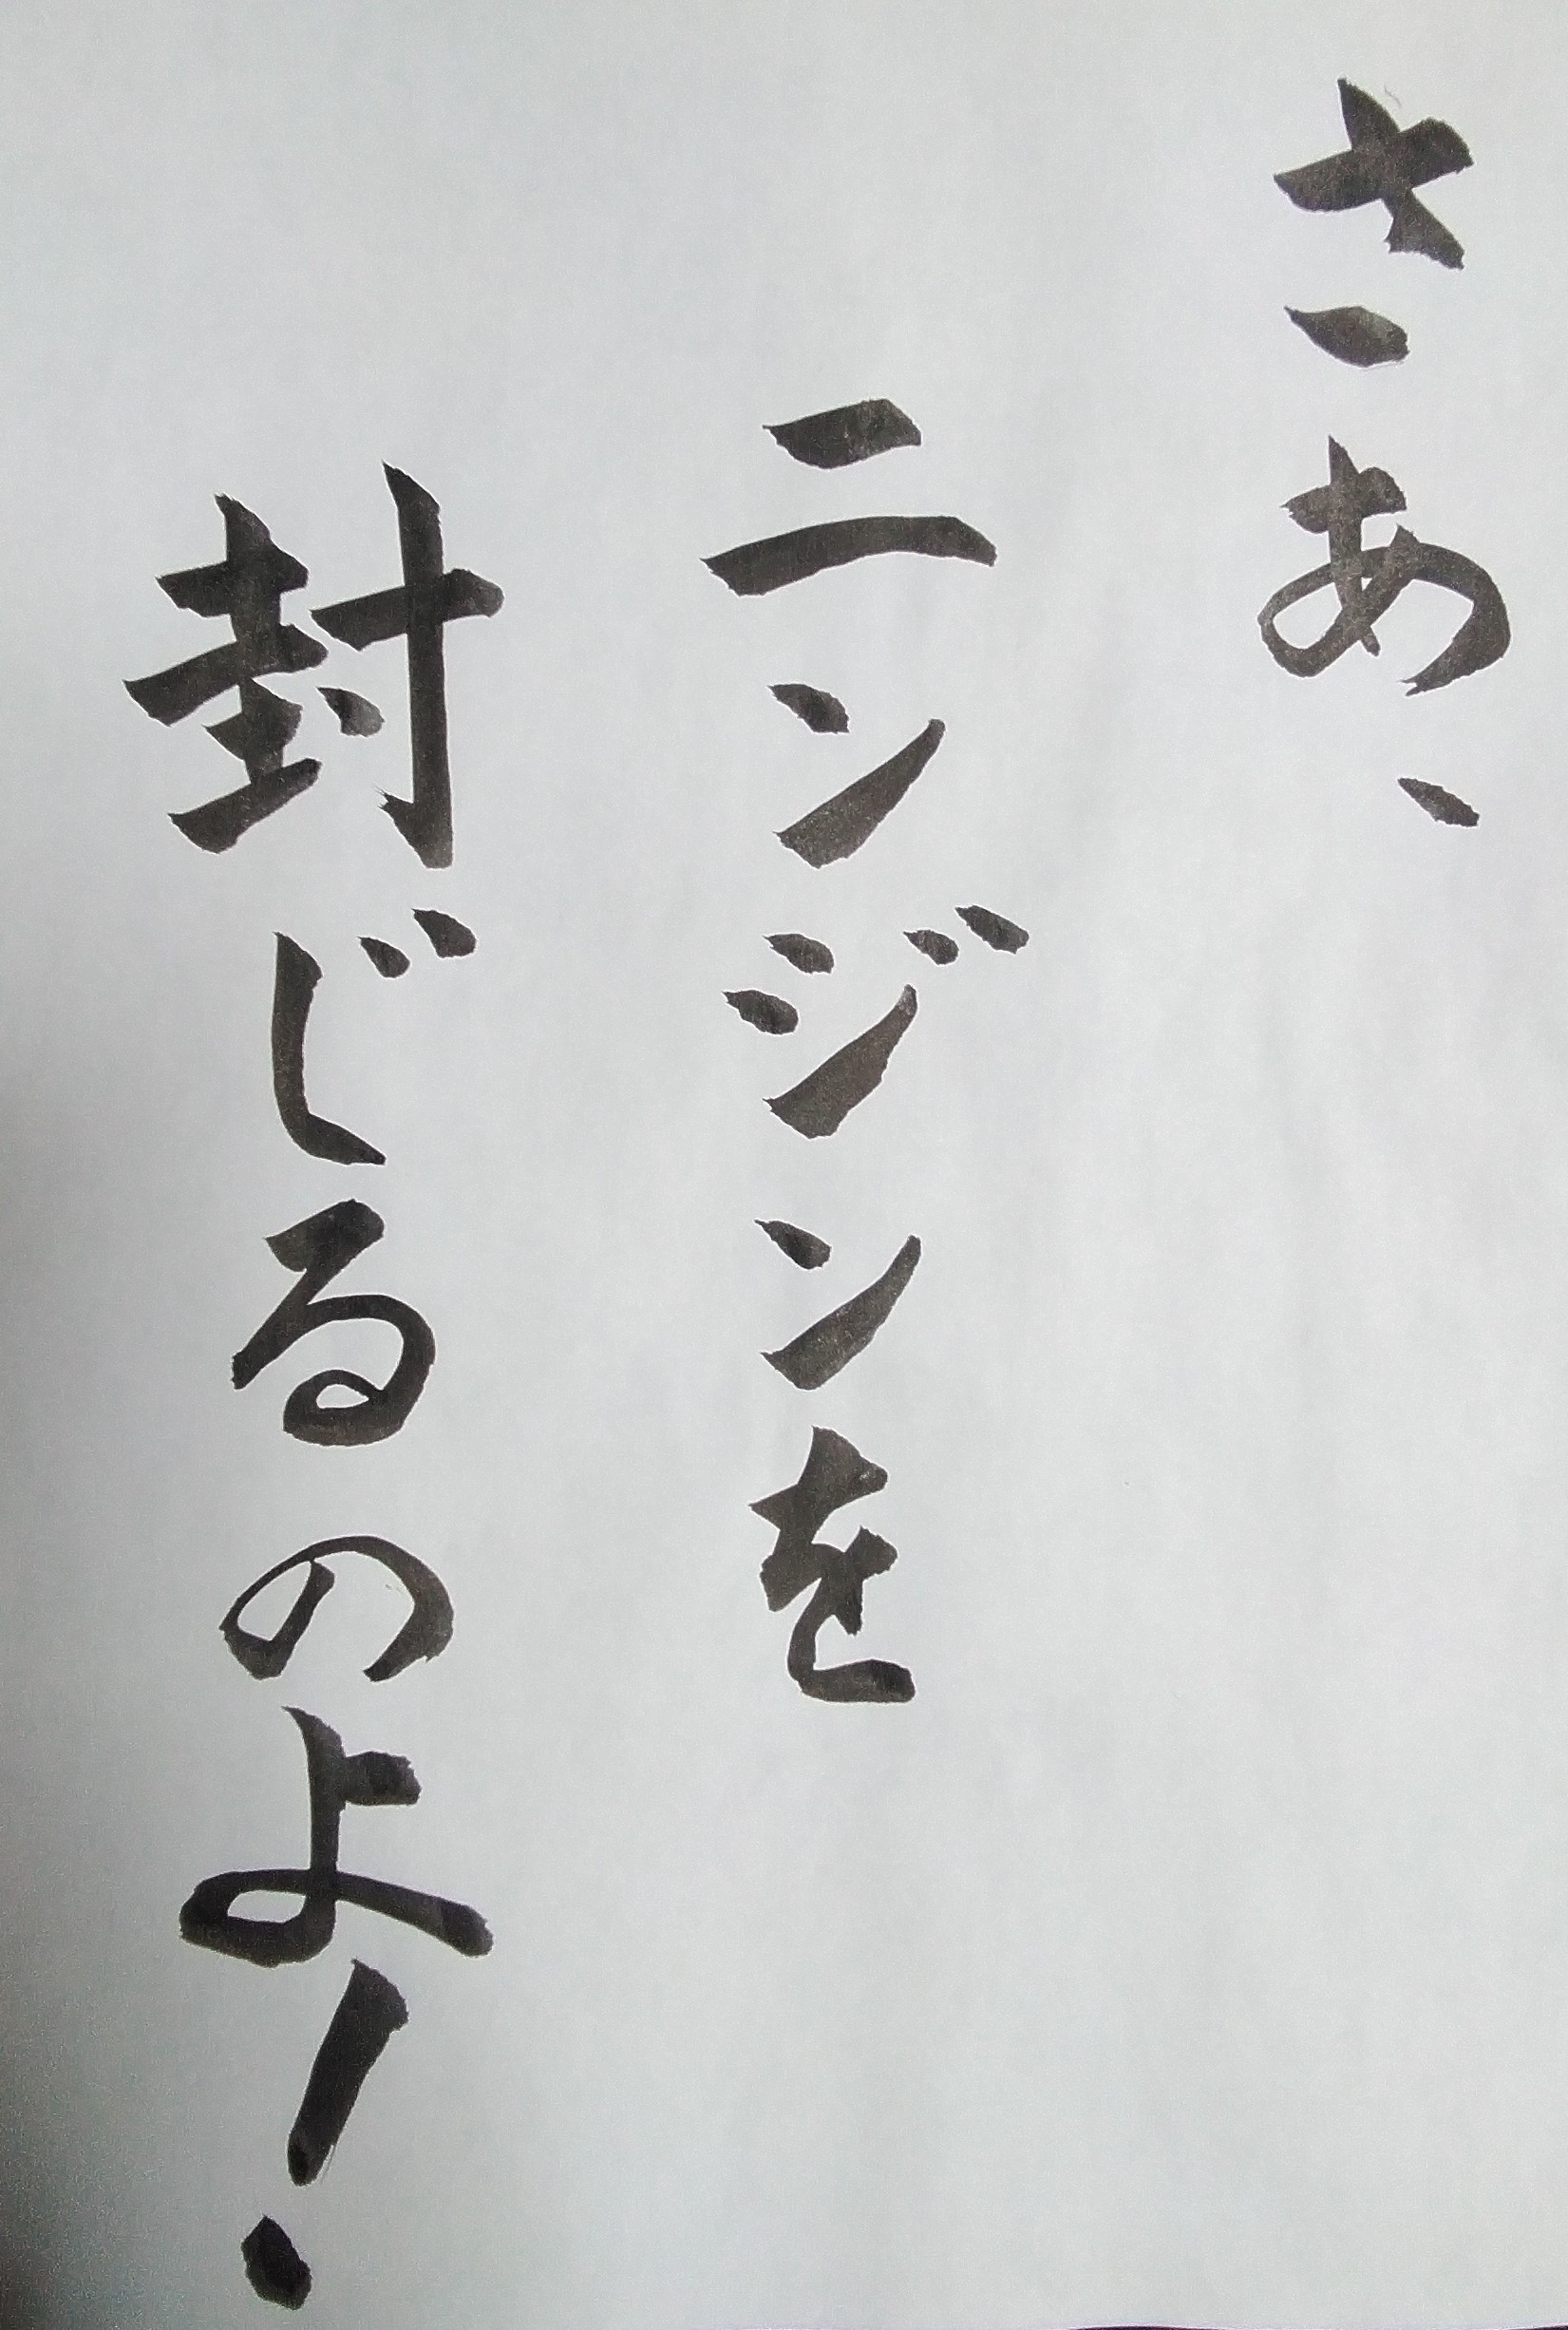 さあ、
ニンジンを
封じるのよ！